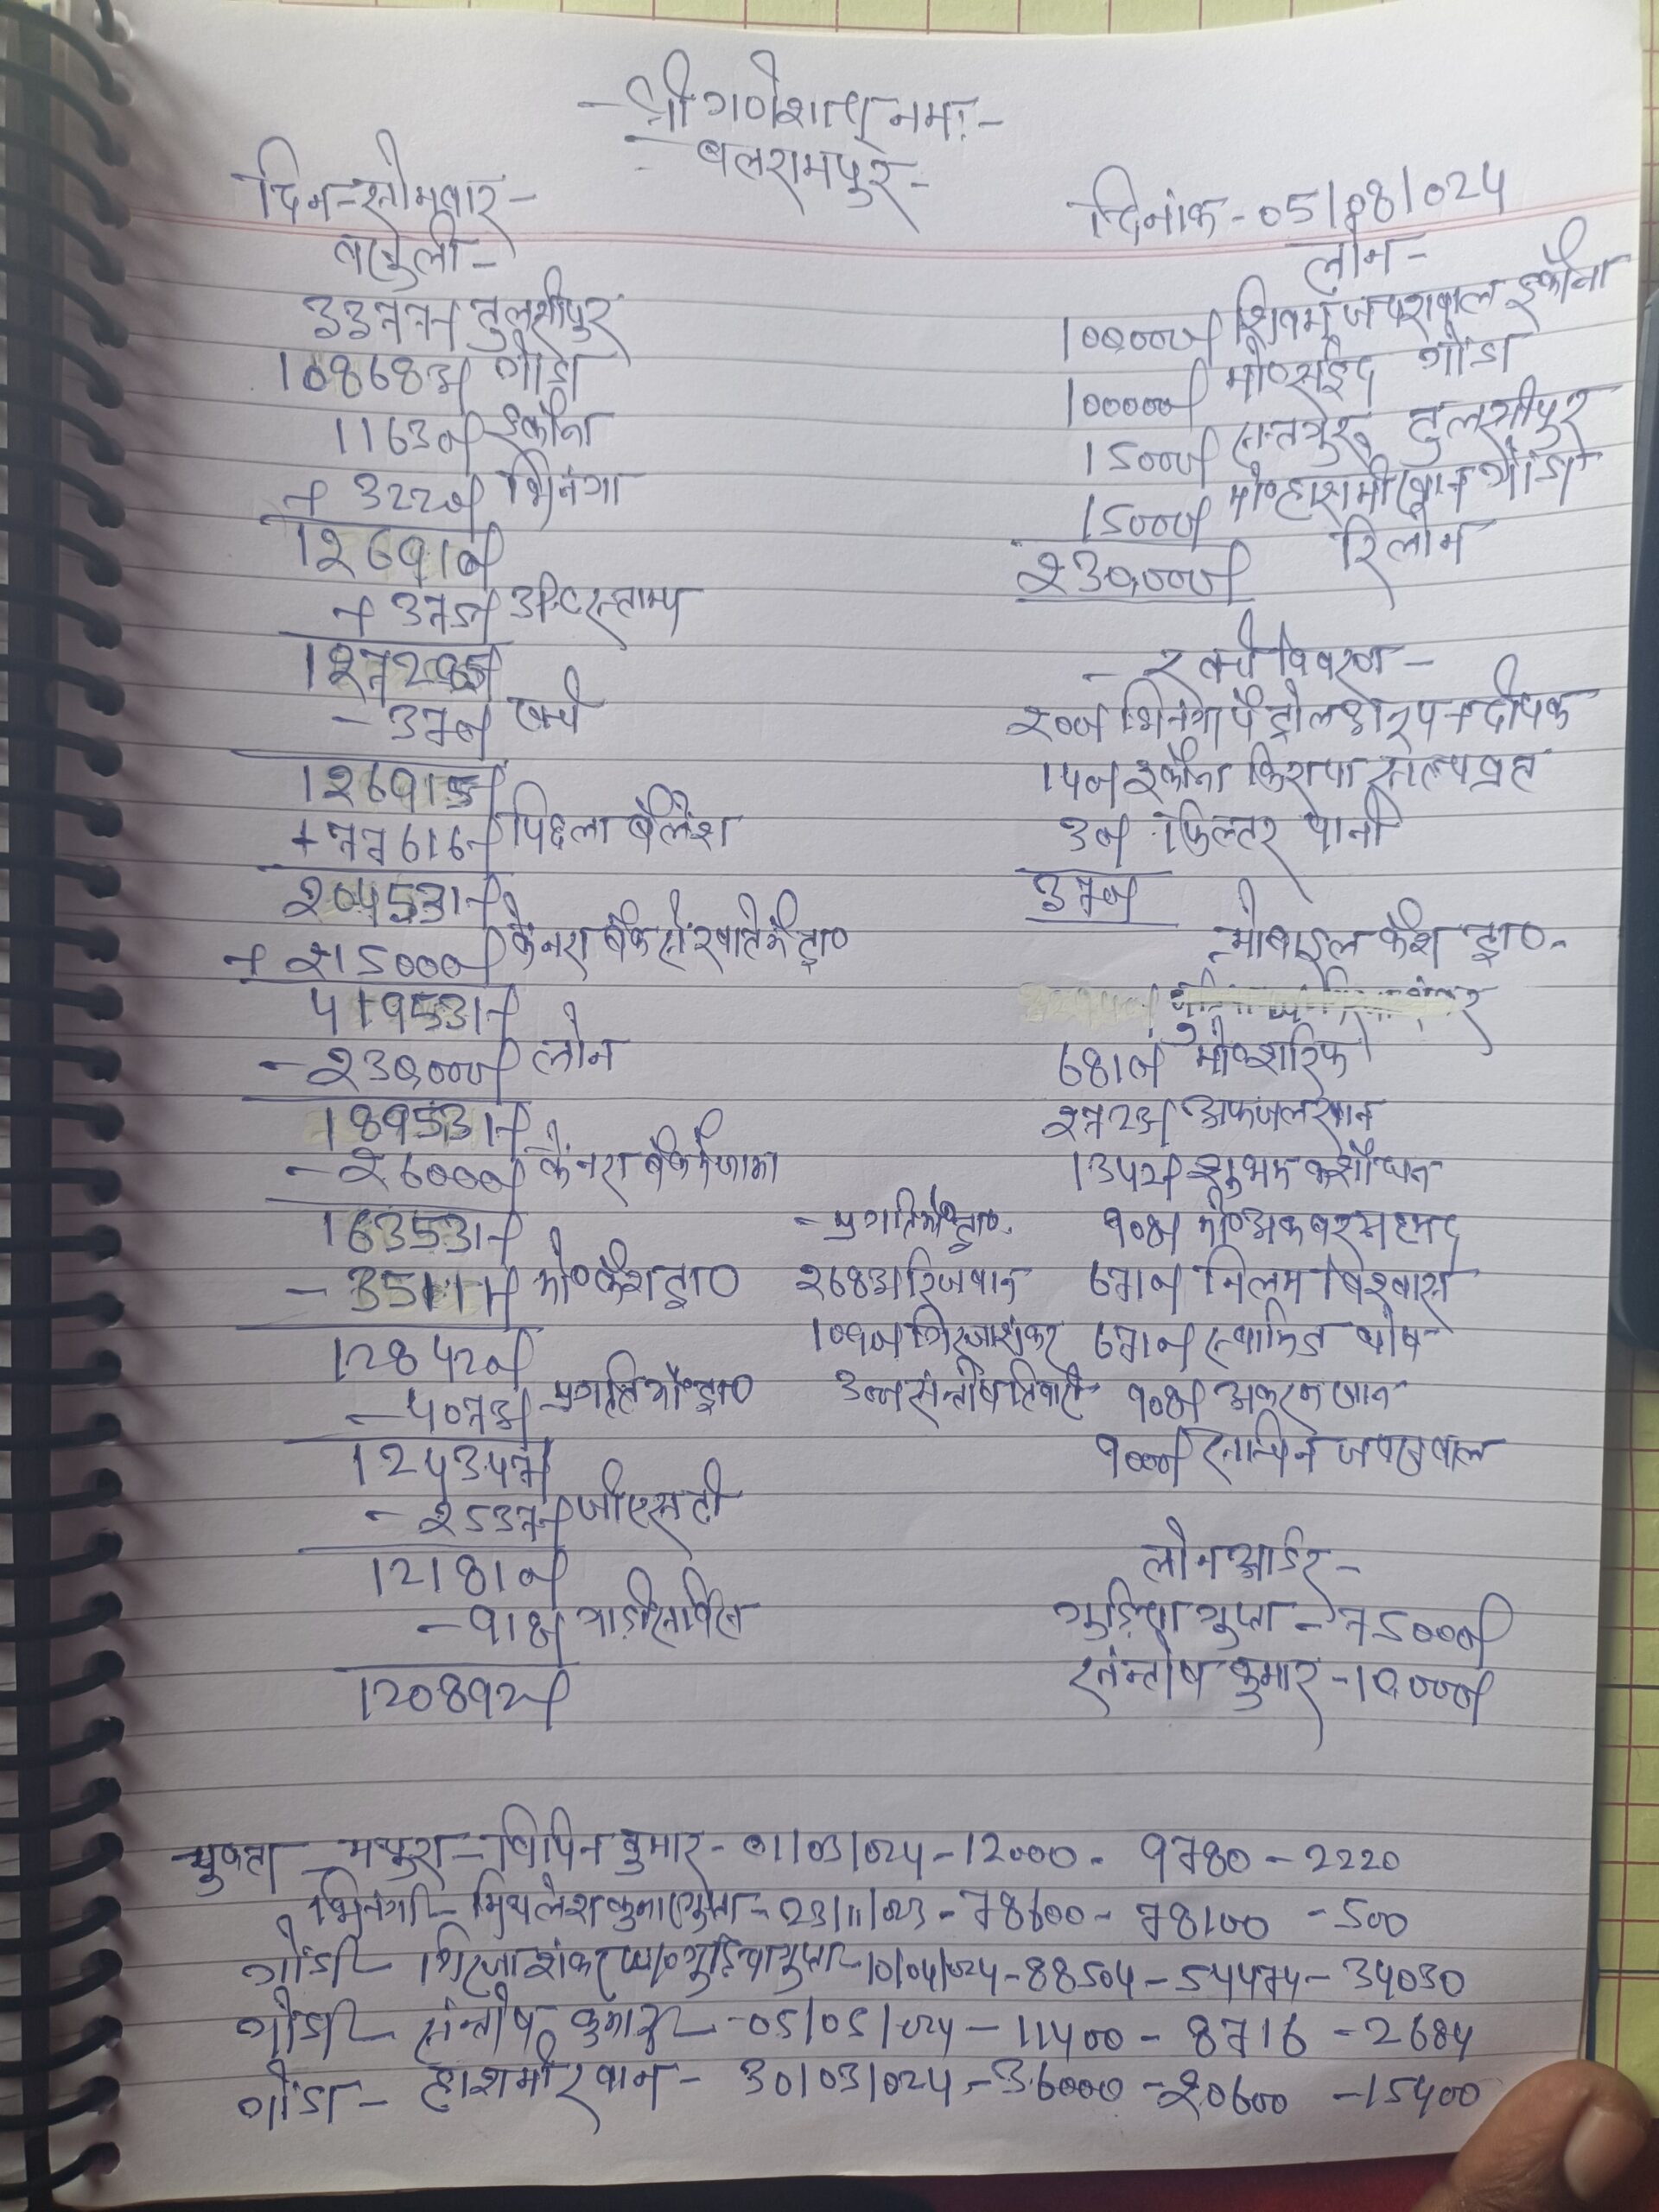 -श्री गणेशाय नमः-
-बलरामपुर-
दिन-सोमवार-
दिनांक-05/08/024
वसुली-
3377/- तुलसीपुर
108683/- गोंडा
11630/- इकौना
+ 3220/- भिनगा
126910/-
+ 375/- अ०स्टाम्प
127285/-
- 370/- खर्च
126915/-
+77616/- पिछला बैलेंश
204531/-
+ 215000/- केनरा बैंक से खाते में ट्रा०
419531/-
-230,000/- लोन
189531/-
-26000/- कैनरा बैंक में जमा
163531/-
- 35111/- मो०कैश ट्रा०
128420/-
- 4073/- प्रगति मो०ट्रा०
124347/-
- 2537/- जीएसटी
121810/-
- 918/- गाडी सर्विस
120892/-
लोन-
100,000/- शिवम जयसवाल इकौना
100000/- मो०सईद गोंडा
15000/- सतगुरु तुलसीपुर
15000/- मो०हाशमी खान गोंडा
230,000/- रिलोन
-खर्च विवरण-
200/- भिनगा पैट्रोल दीपक
140/- इकौना किराया सत्यव्रत
30/- फिल्टर पानी
370/-
-मोबाइल कैश ट्रा०-
6810/- मो०शारिफ
2723/- अफजल खान
1342/- शुभम कसौधन
908/- मो०अकबर अहमद
6710/- निलम विश्वास
6710/- घोष
908/- अकरम खान
9000/- सचिन जयसवाल
-प्रगति मो०ट्रा०-
2683/- रिजवान
1090/- गिरजाशंकर
300/- संन्तोष तिवारी
लोन आर्डर-
गुड़िया गुप्ता-75000/-
संन्तोष कुमार-10,000/-
चुकता - मथुरा-विपिन कुमार-01/03/024-12000-9780-2220
भिनगा-मिथलेश कुमार गुप्ता-23/11/023-78600-78100-500
गोंडा-गिरजाशंकर गुड़िया गुप्ता-10/04/024-88504-54474-34030
गोंडा-संन्तोष कुमार-05/05/024-11400-8716-2684
गोंडा-हाशमी खान-30/03/024-36000-20600-15400